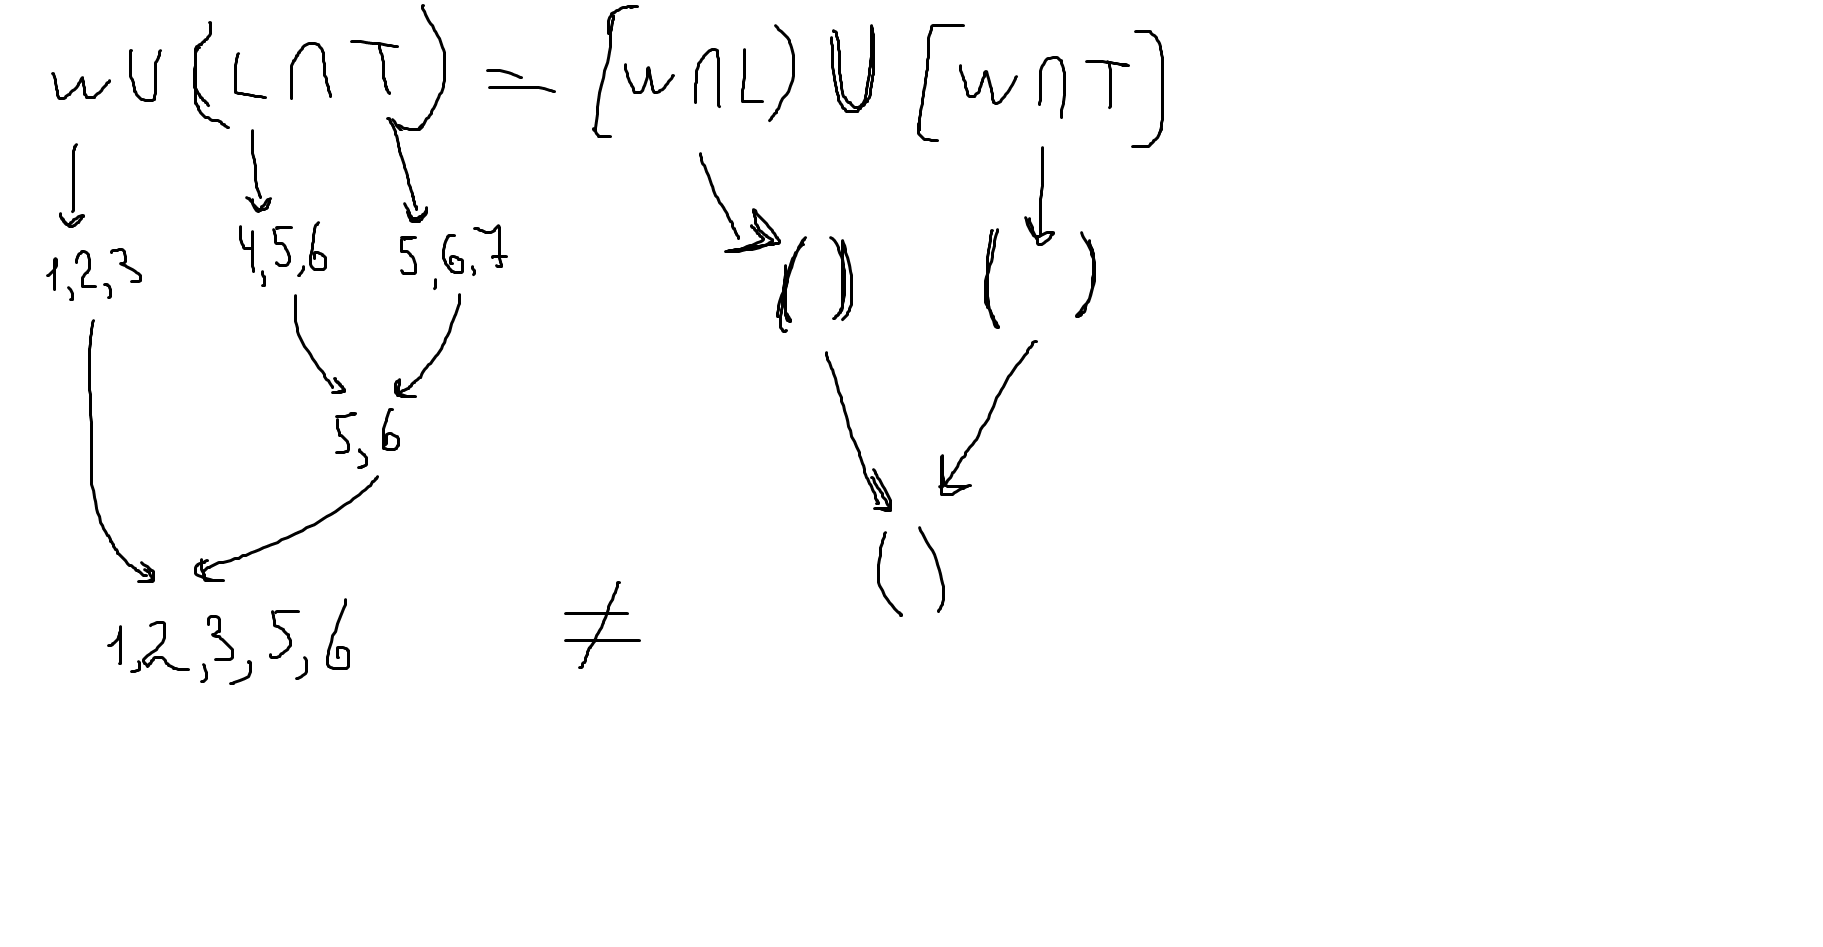 w ∪ (L ∩ T) = [w ∩ L) ∪ [w ∩ T]
1,2,3 4,5,6 5,6,7 ( ) ( )
5,6
1,2,3,5,6 ≠ ( )